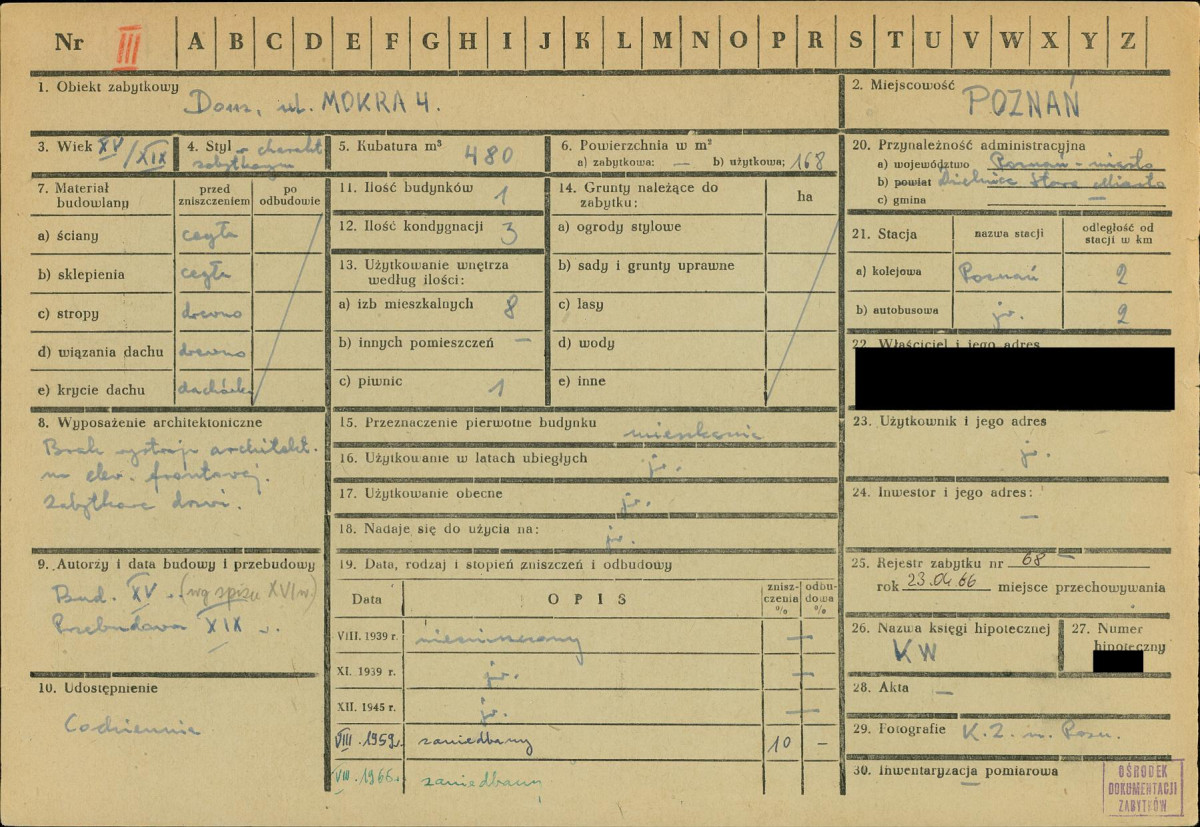 Nr III A B C D E F G H I J K L M N O P R S T U V W X Y Z
1. Obiekt zabytkowy
Dom, ul. MOKRA 4.
2. Miejscowość
POZNAŃ
3. Wiek XV/XIX
4. Styl o charakt.
zabytkowym
5. Kubatura m³ 480
6. Powierzchnia w m²
a) zabytkowa: — b) użytkowa: 168
7. Materiał budowlany
przed zniszczeniem
po odbudowie
a) ściany cegła
b) sklepienia cegła
c) stropy drewno
d) wiązania dachu drewno
e) krycie dachu dachówka
8. Wyposażenie architektoniczne
Brak wystroju architekt.
na elev. frontowej.
zabytkowe drzwi.
9. Autorzy i data budowy i przebudowy
Bud. XV w. (wg spisu XVI w.)
Przebudowa XIX w.
10. Udostępnienie
Codziennie
11. Ilość budynków 1
12. Ilość kondygnacji 3
13. Użytkowanie wnętrza
według ilości:
a) izb mieszkalnych 8
b) innych pomieszczeń —
c) piwnic 1
14. Grunty należące do
zabytku:
ha
a) ogrody stylowe
b) sady i grunty uprawne
c) lasy
d) wody
e) inne
15. Przeznaczenie pierwotne budynku mieszkanie
16. Użytkowanie w latach ubiegłych jw.
17. Użytkowanie obecne jw.
18. Nadaje się do użycia na: jw.
19. Data, rodzaj i stopień zniszczeń i odbudowy
Data OPIS zniszczenia % odbudowa %
VIII. 1939 r. niezniszczony —
XI. 1939 r. jw. —
XII. 1945 r. jw. —
VIII. 1959 r. zaniedbany 10 —
VIII. 1966 r. zaniedbany
20. Przynależność administracyjna
a) województwo Poznań - miasto
b) powiat Dzielnica Stare Miasto
c) gmina —
21. Stacja
nazwa stacji
odległość od
stacji w km
a) kolejowa Poznań 2
b) autobusowa jw. 2
22. Właściciel i jego adres
23. Użytkownik i jego adres
jw.
24. Inwestor i jego adres:
—
25. Rejestr zabytku nr 68
rok 23.04.66 miejsce przechowywania
26. Nazwa księgi hipotecznej
KW
27. Numer
hipoteczny
28. Akta —
29. Fotografie K. Z. m. Pozn.
30. Inwentaryzacja pomiarowa
—
OŚRODEK
DOKUMENTACJI
ZABYTKÓW